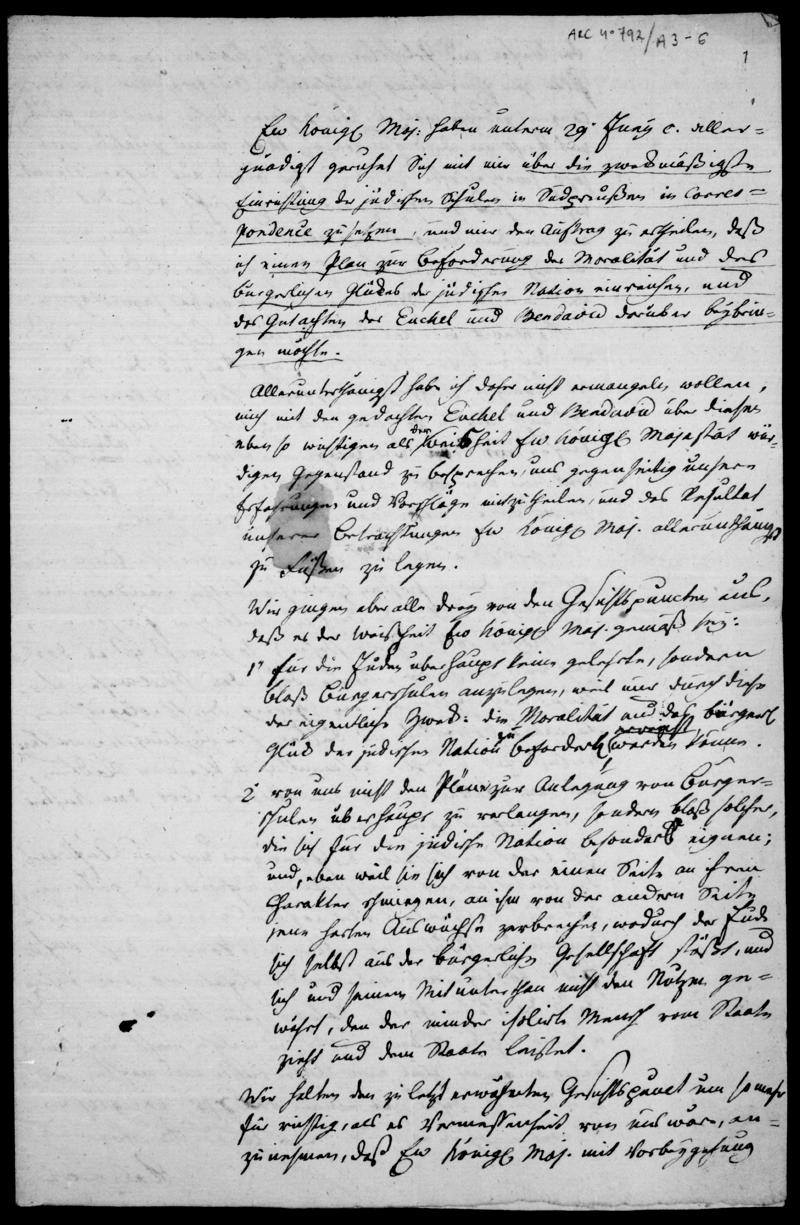 ARC 4° 792/A3-6
1
Ew Königl Maj: haben unterm 29t Juny c. aller=
gnädigst geruhet Sich mit mir über die zweckmäßigste
Einrichtung der jüdischen Schulen in Südpreußen in Corres=
pondence zu setzen, und mir den Auftrag zu ertheilen, daß
ich einen Plan zur Beförderung der Moralität und des
bürgerlichen Glückes der jüdischen Nation einreichen, und
das Gutachten der Euchel und Bendavid darüber beybrin=
gen möchte.
Allerunterthänigst habe ich daher nicht ermangeln wollen,
mich mit den gedachten Euchel und Bendavid über diesen
eben so wichtigen als der Weisheit Ew Königl Majestät wür=
digen Gegenstand zu besprechen, uns gegenseitig unsere
Erfahrungen und Vorschläge mitzutheilen, und das Resultat
unserer Betrachtungen Ew Königl Maj. allerunterthänigst
zu Füßen zu legen.
Wir gingen aber alle drey von den Gesichtspuncten aus,
daß es der Weisheit Ew Königl Maj. gemäß sey:
1° für die Juden überhaupt keine gelehrte, sondern
bloß Bürgerschulen anzulegen, weil nur durch diese
der eigentliche Zweck: die Moralität und das bürgerl
Glück der jüdischen Nation zu befördern erreicht werden könne.
2° von uns nicht den Plan zur Anlegung von Bürger=
schulen überhaupt zu verlangen, sondern bloß solcher,
die sich für die jüdische Nation besonders eignen;
und, eben weil sie sich von der einen Seite an ihren
Charakter schmiegen, an ihm von der andern Seite
jene harten Auswüchse zerbrechen, wodurch der Jude
sich selbst aus der bürgerlichen Gesellschaft stößt, und
sich und seinem Mitunterthan nicht den Nutzen ge=
währt, den der minder isolirte Mensch vom Staate
zieht und dem Staate leistet.
Wir halten den zuletzt erwähnten Gesichtspunct um so mehr
für richtig, als es Vermessenheit von uns wäre, an=
zunehmen, daß Ew Königl Maj. mit Vorbeygehung